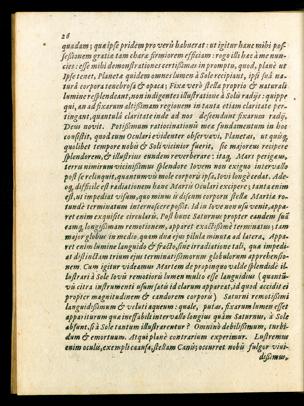 26
quadam; quæ ipse pridem pro veris habuerat: ut igitur hanc mihi pos-
sessionem gratia tam charæ firmiorem efficiam: rogo illi hæc à me nun-
cies: esse mihi demonstrationes certissimas in promptu, quod, planè ut
Ipse tenet, Planetæ quidem omnes lumen à Sole recipiant, ipsi suâ na-
turâ corpora tenebrosa & opaca; Fixæ verò stellæ proprio & naturali
lumine resplendeant, non indigentes illustratione à Solis radijs: quippe
qui, an ad fixarum altissimam regionem in tanta etiam claritate per-
tingant, quantulâ claritate inde ad nos descendunt fixarum radij,
Deus novit. Potissimum ratiocinationis meæ fundamentum in hoc
consistit, quod cum Oculari evidenter observavi, Planetas, ut quisq;
quolibet tempore nobis & Soli vicinior fuerit, sic majorem recipere
splendorem, & illustrius eundem reverberare: itaq; Mars perigæus,
terris nimirum vicinissimus splendore Iovem non exiguo intervallo
post se relinquit, quantumvis mole corporis ipsi, Iovi longè cedat. Ade-
oq; difficile est radiationem hanc Martis Oculari excipere; tanta enim
est, ut impediat visum, quo minus is discum corporis stellæ Martis ro-
tundè terminatum internoscere possit. Id in Iove non usu venit, appa-
ret enim exquisitè circularis. Post hunc Saturnus propter eandem suã
eamq; longissimam remotionem, apparet exactissimè terminatus; tam
major globus in medio, quam duæ ejus pilulæ minutæ ad latera. Appa-
ret enim lumine languido & fracto, sine irradiatione tali, quæ impedi-
at distinctam trium ejus terminatissimorum globulorum apprehensio-
nem. Cum igitur videamus Martem de propinquo valde splendidè il-
lustrari à Sole Iovis remotioris lumen multo esse languidius (quantũ-
vis citra instrumenti usum satis id clarum appareat, id quod accidit ei
propter magnitudinem & candorem corporis) Saturni remotissimi
languidissimum & veluti aqueum: quale, putas, fixarum lumen esset
appariturum quæ ineffabili intervallo longius quàm Saturnus, à Sole
absunt, si à Sole tantum illustrarentur? Omninò debilissimum, turbi-
dum & emortuum. Atqui planè contrarium experimur. Lustremus
enim oculis, exempli causa, stellam Canis; occurret nobis fulgor vivi-
dissimus,